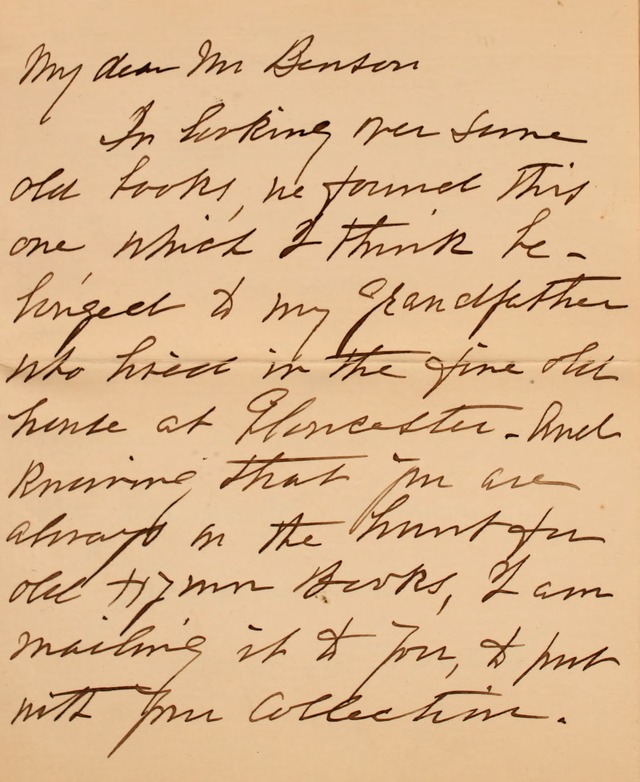 My dear Mr Benson
In looking over some
old books, we found this
one which I think be-
longed to my Grandfather
who lived in the fine old
house at Gloucester. And
knowing that you are
always on the hunt for
old Hymn Books, I am
mailing it to you, to put
with your Collection.